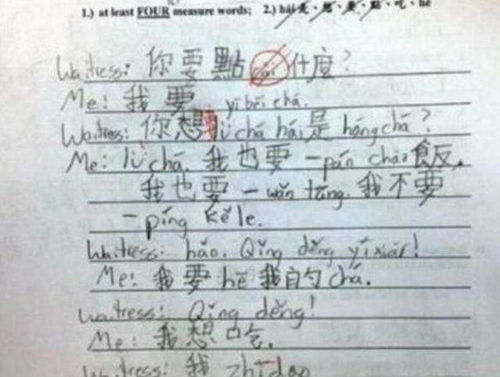 1.) at least FOUR measure words; 2.) hái 是、想、要、點、吃、hē
Waitress: 你要點 什麼?
Me: 我要 yì bēi chá.
Waitress: 你想 lǜ chá hái 是 hóng chá?
Me: lǜ chá. 我也要一pán chǎo 飯.
我也要一wǎn tāng. 我不要
一píng kě lè.
Waitress: hǎo. Qǐng děng yí xiàr!
Me: 我要 hē 我自勺 chá.
Waitress: Qǐng děng!
Me: 我想吃.
Waitress: 我 zhīdào